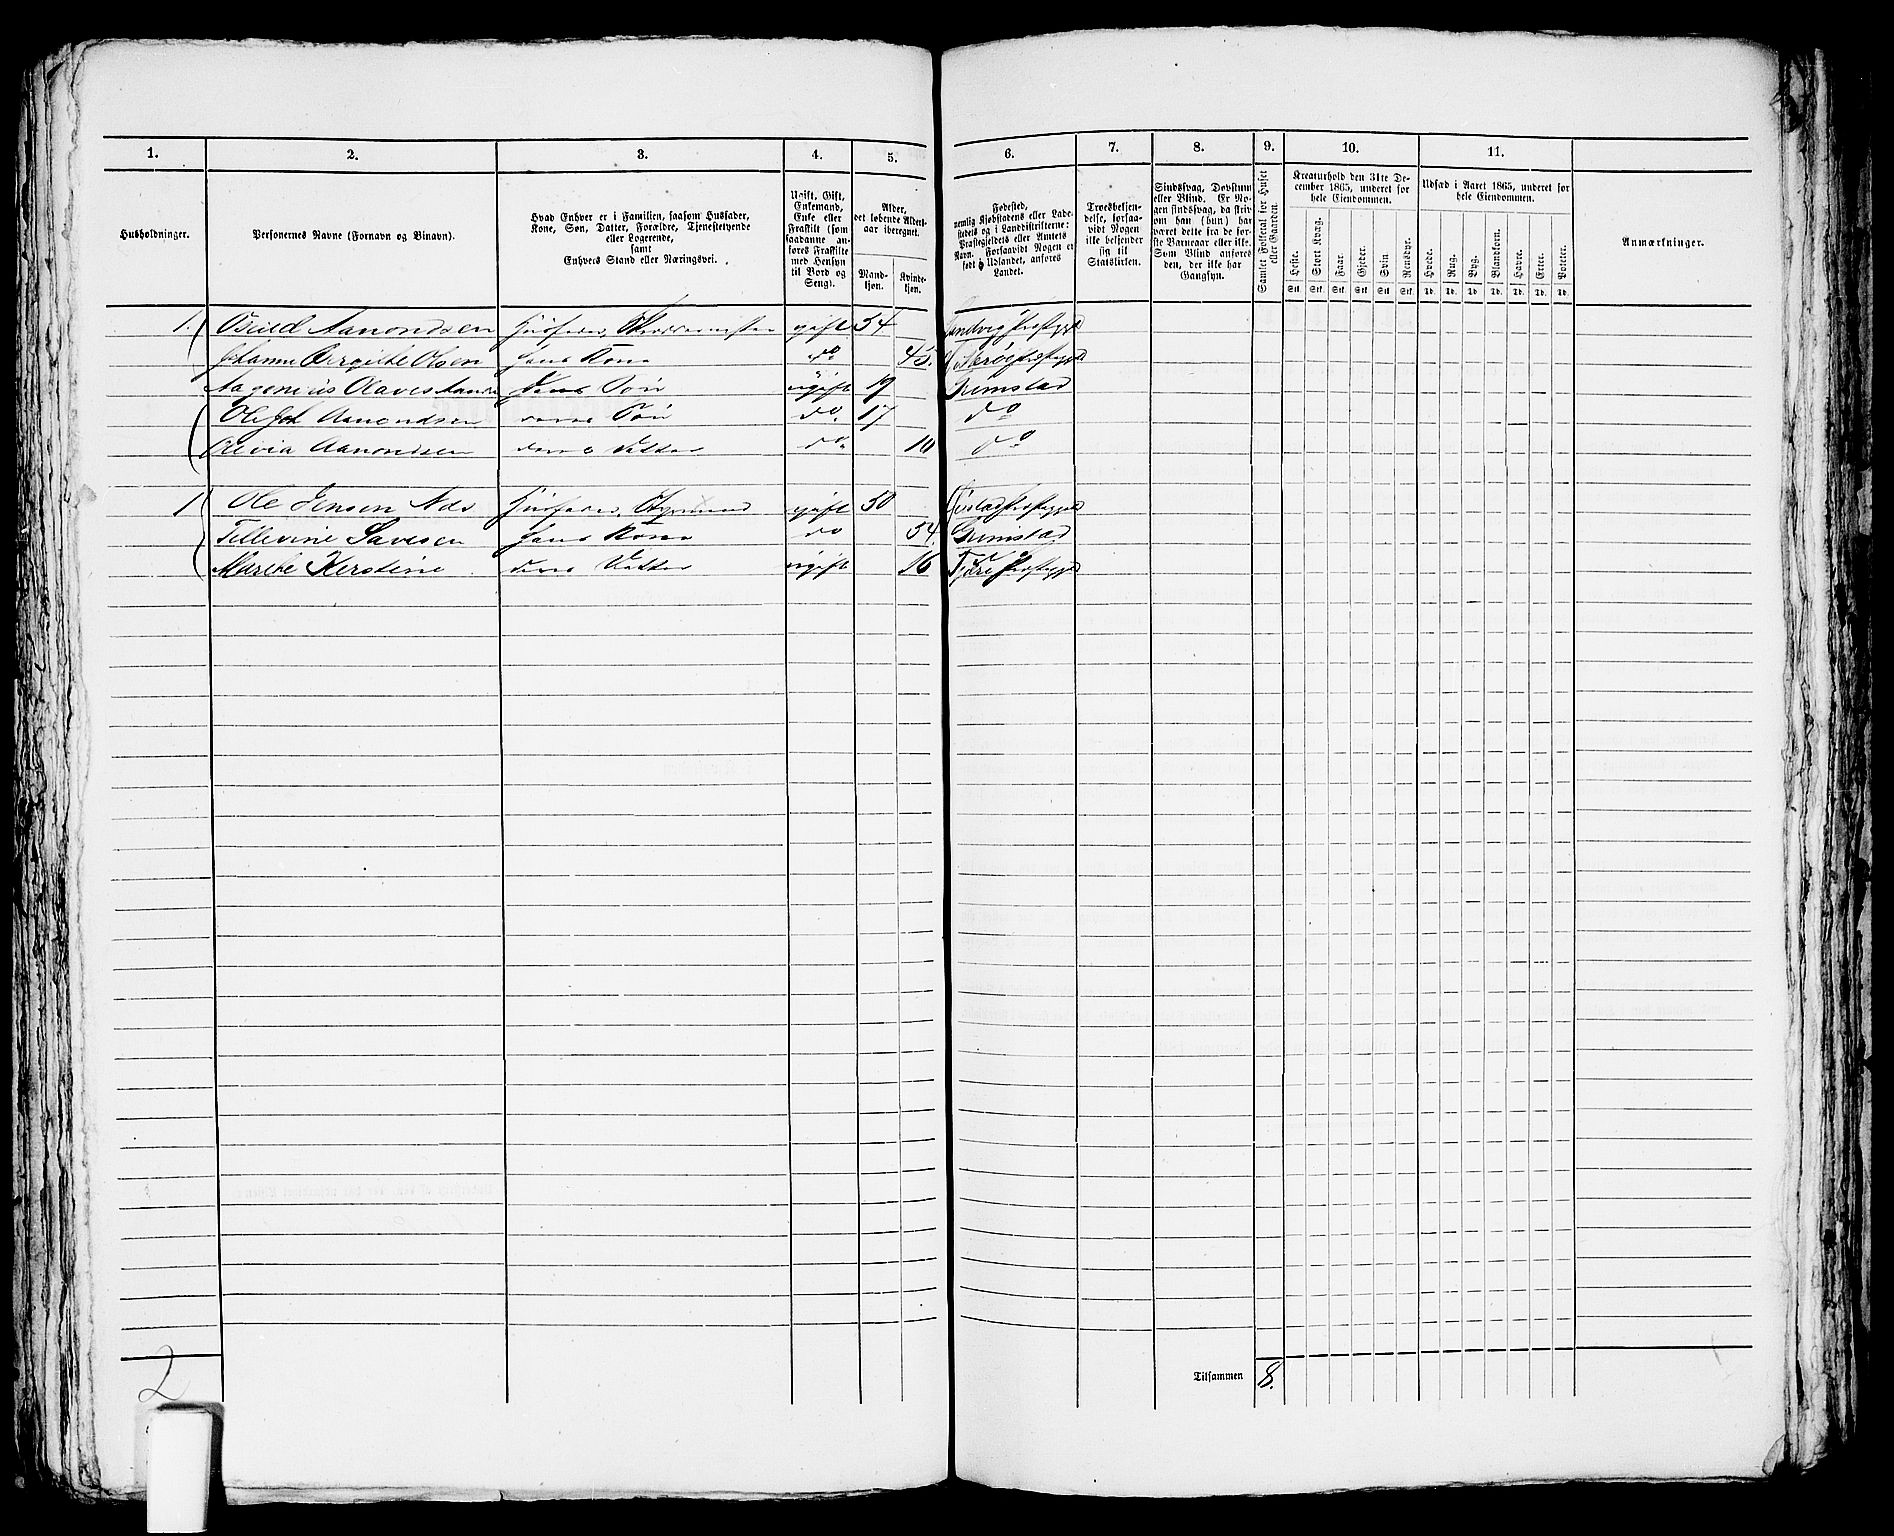 1. 2. 3. 4. 5. 6. 7. 8. 9. 10. 11.
Husholdninger.
Personernes Navne (Fornavn og Binavn).
Hvad Enhver er i Familien, saasom Husfader,
Kone, Søn, Datter, Forældre, Tjenestetyende
eller Logerende,
samt
Enhvers Stand eller Næringsvei.
Ugift, Gift,
Enkemand,
Enke eller
Fraskilt (som
saadanne an-
føres Fraskilte
med Hensyn
til Bord og
Seng).
Alder,
det løbende Alders-
aar iberegnet.
Mand-
kjøn.
Kvinde-
kjøn.
Fødested,
nemlig Kjøbstadens eller Lade-
stedets og i Landdistrikterne:
Præstegjeldets eller Amtets
Navn. Forsaavidt Nogen er
født i Udlandet, anføres
Landet.
Troesbekjen-
delse, forsaa-
vidt Nogen
ikke bekjender
sig til
Statskirken.
Sindssvag, Døvstum
eller Blind. Er No-
gen sindssvag, da skriv
om han (hun) har
været dette fra de før-
ste Barneaar eller ikke.
Som Blind anføres
den, der ikke har
Gangsyn.
Samlet Folketal for Huset
eller Gaarden.
Kreaturhold den 31te De-
cember 1865, underet for
hele Eiendommen.
Heste. Stort Kvæg. Faar. Gjeder. Svin. Rensdyr.
Stk. Stk. Stk. Stk. Stk. Stk.
Udsæd i Aaret 1865, underet for
hele Eiendommen.
Hvede. Rug. Byg. Blandkorn. Havre. Erter. Poteter.
Td. Td. Td. Td. Td. Td. Td.
Anmærkninger.
1. Aanondsen Husfader, gift 54
Johanne Olsen hans Kone do 45.
ugift 19 Grimstad
Ole Aanondsen Søn do. 17 do
Olivia Aanondsen deres Datter do. 10 do
1 Ole Jensen Husfader, gift 50
Tellevine Savesen hans Kone do 54. Grimstad
Marthe Kirstine deres Datter ugift 16
2
Tilsammen 8.